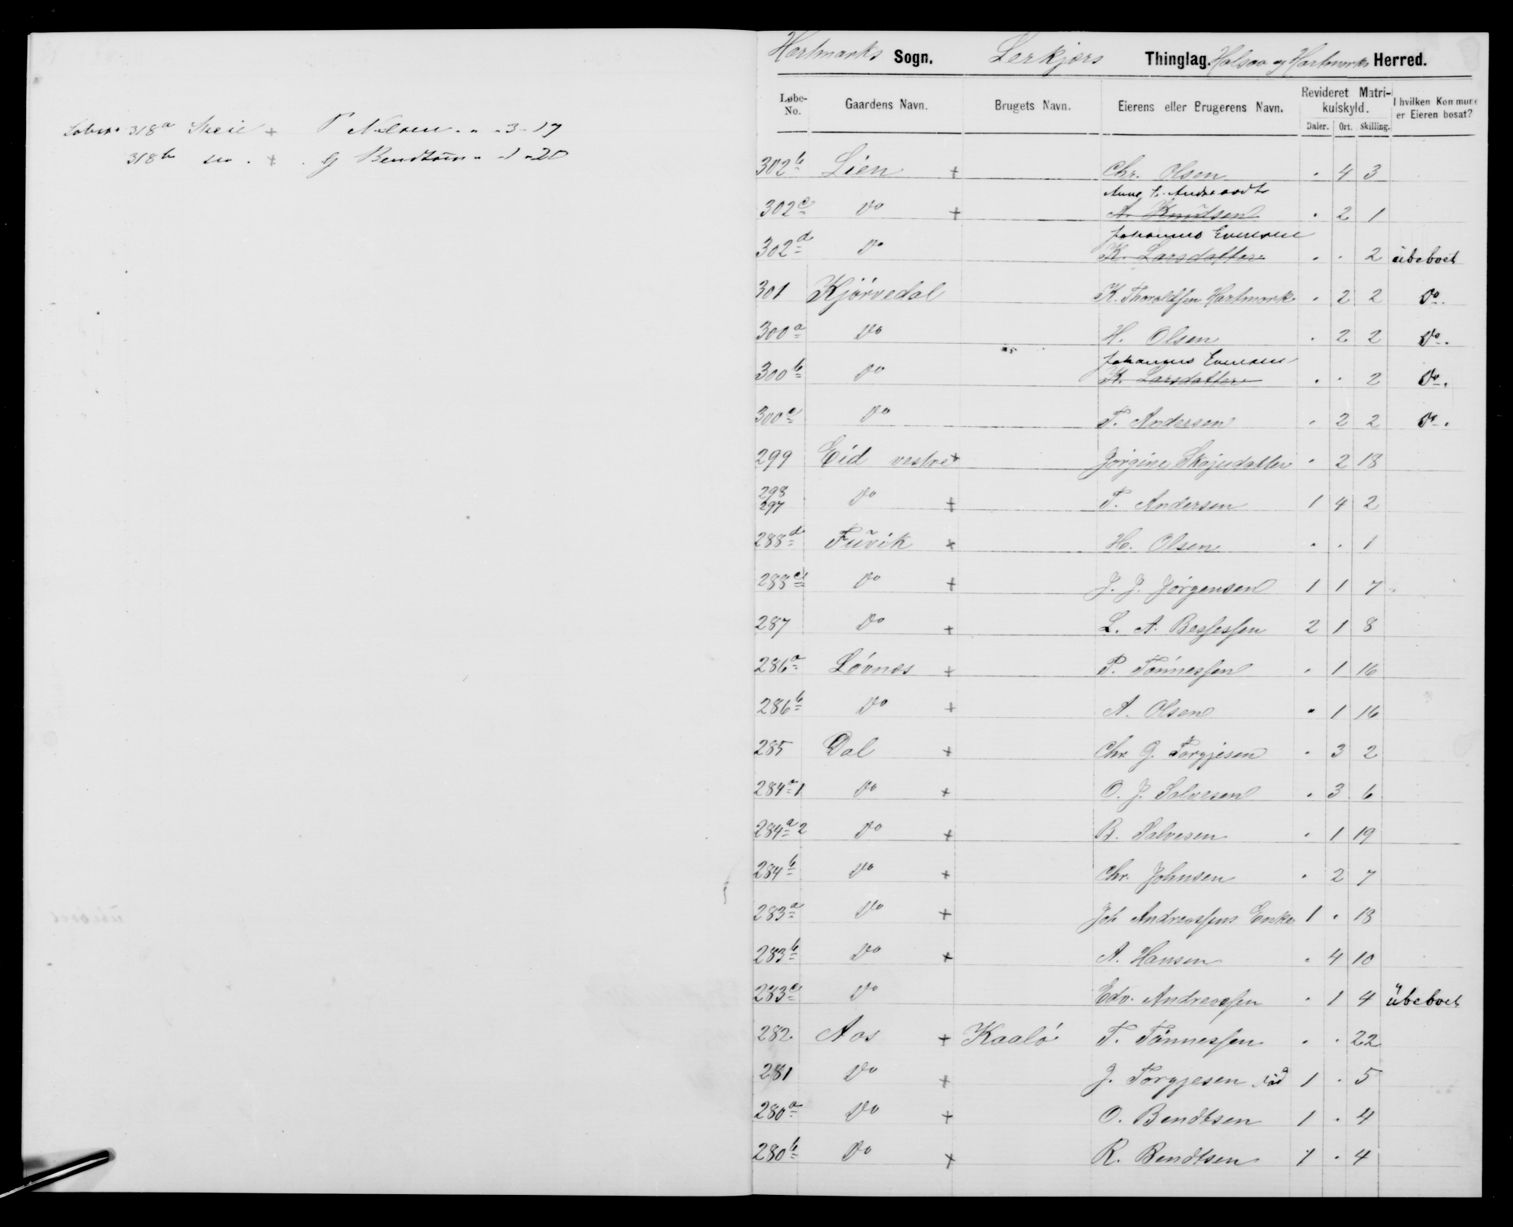 Løbno 318a Skeie + P Nelsen. " " 3 - 17
318b do. + . G Bendtsen " - 1 " 20
Hartmarks Sogn. Lerkjærs Thinglag. Halsaa og Hartmarks Herred.
Løbe-No. Gaardens Navn. Brugets Navn. Eierens eller Brugerens Navn. Revideret Matrikulskyld. Daler. Ort. Skilling. I hvilken Kommune er Eieren bosat?
302b Lien + Chr. Olsen " 4 3
Anne
302c Do + A. Knutsen " 2 1
Johannes Evensen
302d Do K. Larsdatter " " 2 übeboet
301 Kjørvedal K. Thoraldsen Hartmark " 2 2 Do.
300a Do H. Olsen " 2 2 Do.
Johannes Evensen
300b Do K. Larsdatter " " 2 Do.
300c Do T. Andersen " 2 2 Do.
299 Eid vestre + Jørgine " 2 13
298
297 Do + T. Andersen 1 4 2
288d Fuvik + H. Olsen " " 1
288c Do + J. J. Jørgensen 1 1 7
287 Do + L. A. Bessessen 2 1 8
286a Løvnes + P. Tønnessen " 1 16
286b Do + A. Olsen " 1 16
285 Dal + Chr G. Torgjesen " 3 2
284a1 Do + O. J. Salvesen " 3 6
284a2 Do + B. Salvesen " 1 19
284b Do + Chr. Johnsen " 2 7
283a Do + Joh Andreassens Enke 1 " 13
283b Do + A. Hansen " 4 10
283c Do Edv. Andreassen " 1 4 übeboet
282 Aas + Kaalø T. Tønnessen " " 22
281 Do + J. Torgjesen 1 " 5
280a Do + O. Bendtsen 1 " 4
280b Do + R. Bendtsen 1 " 4